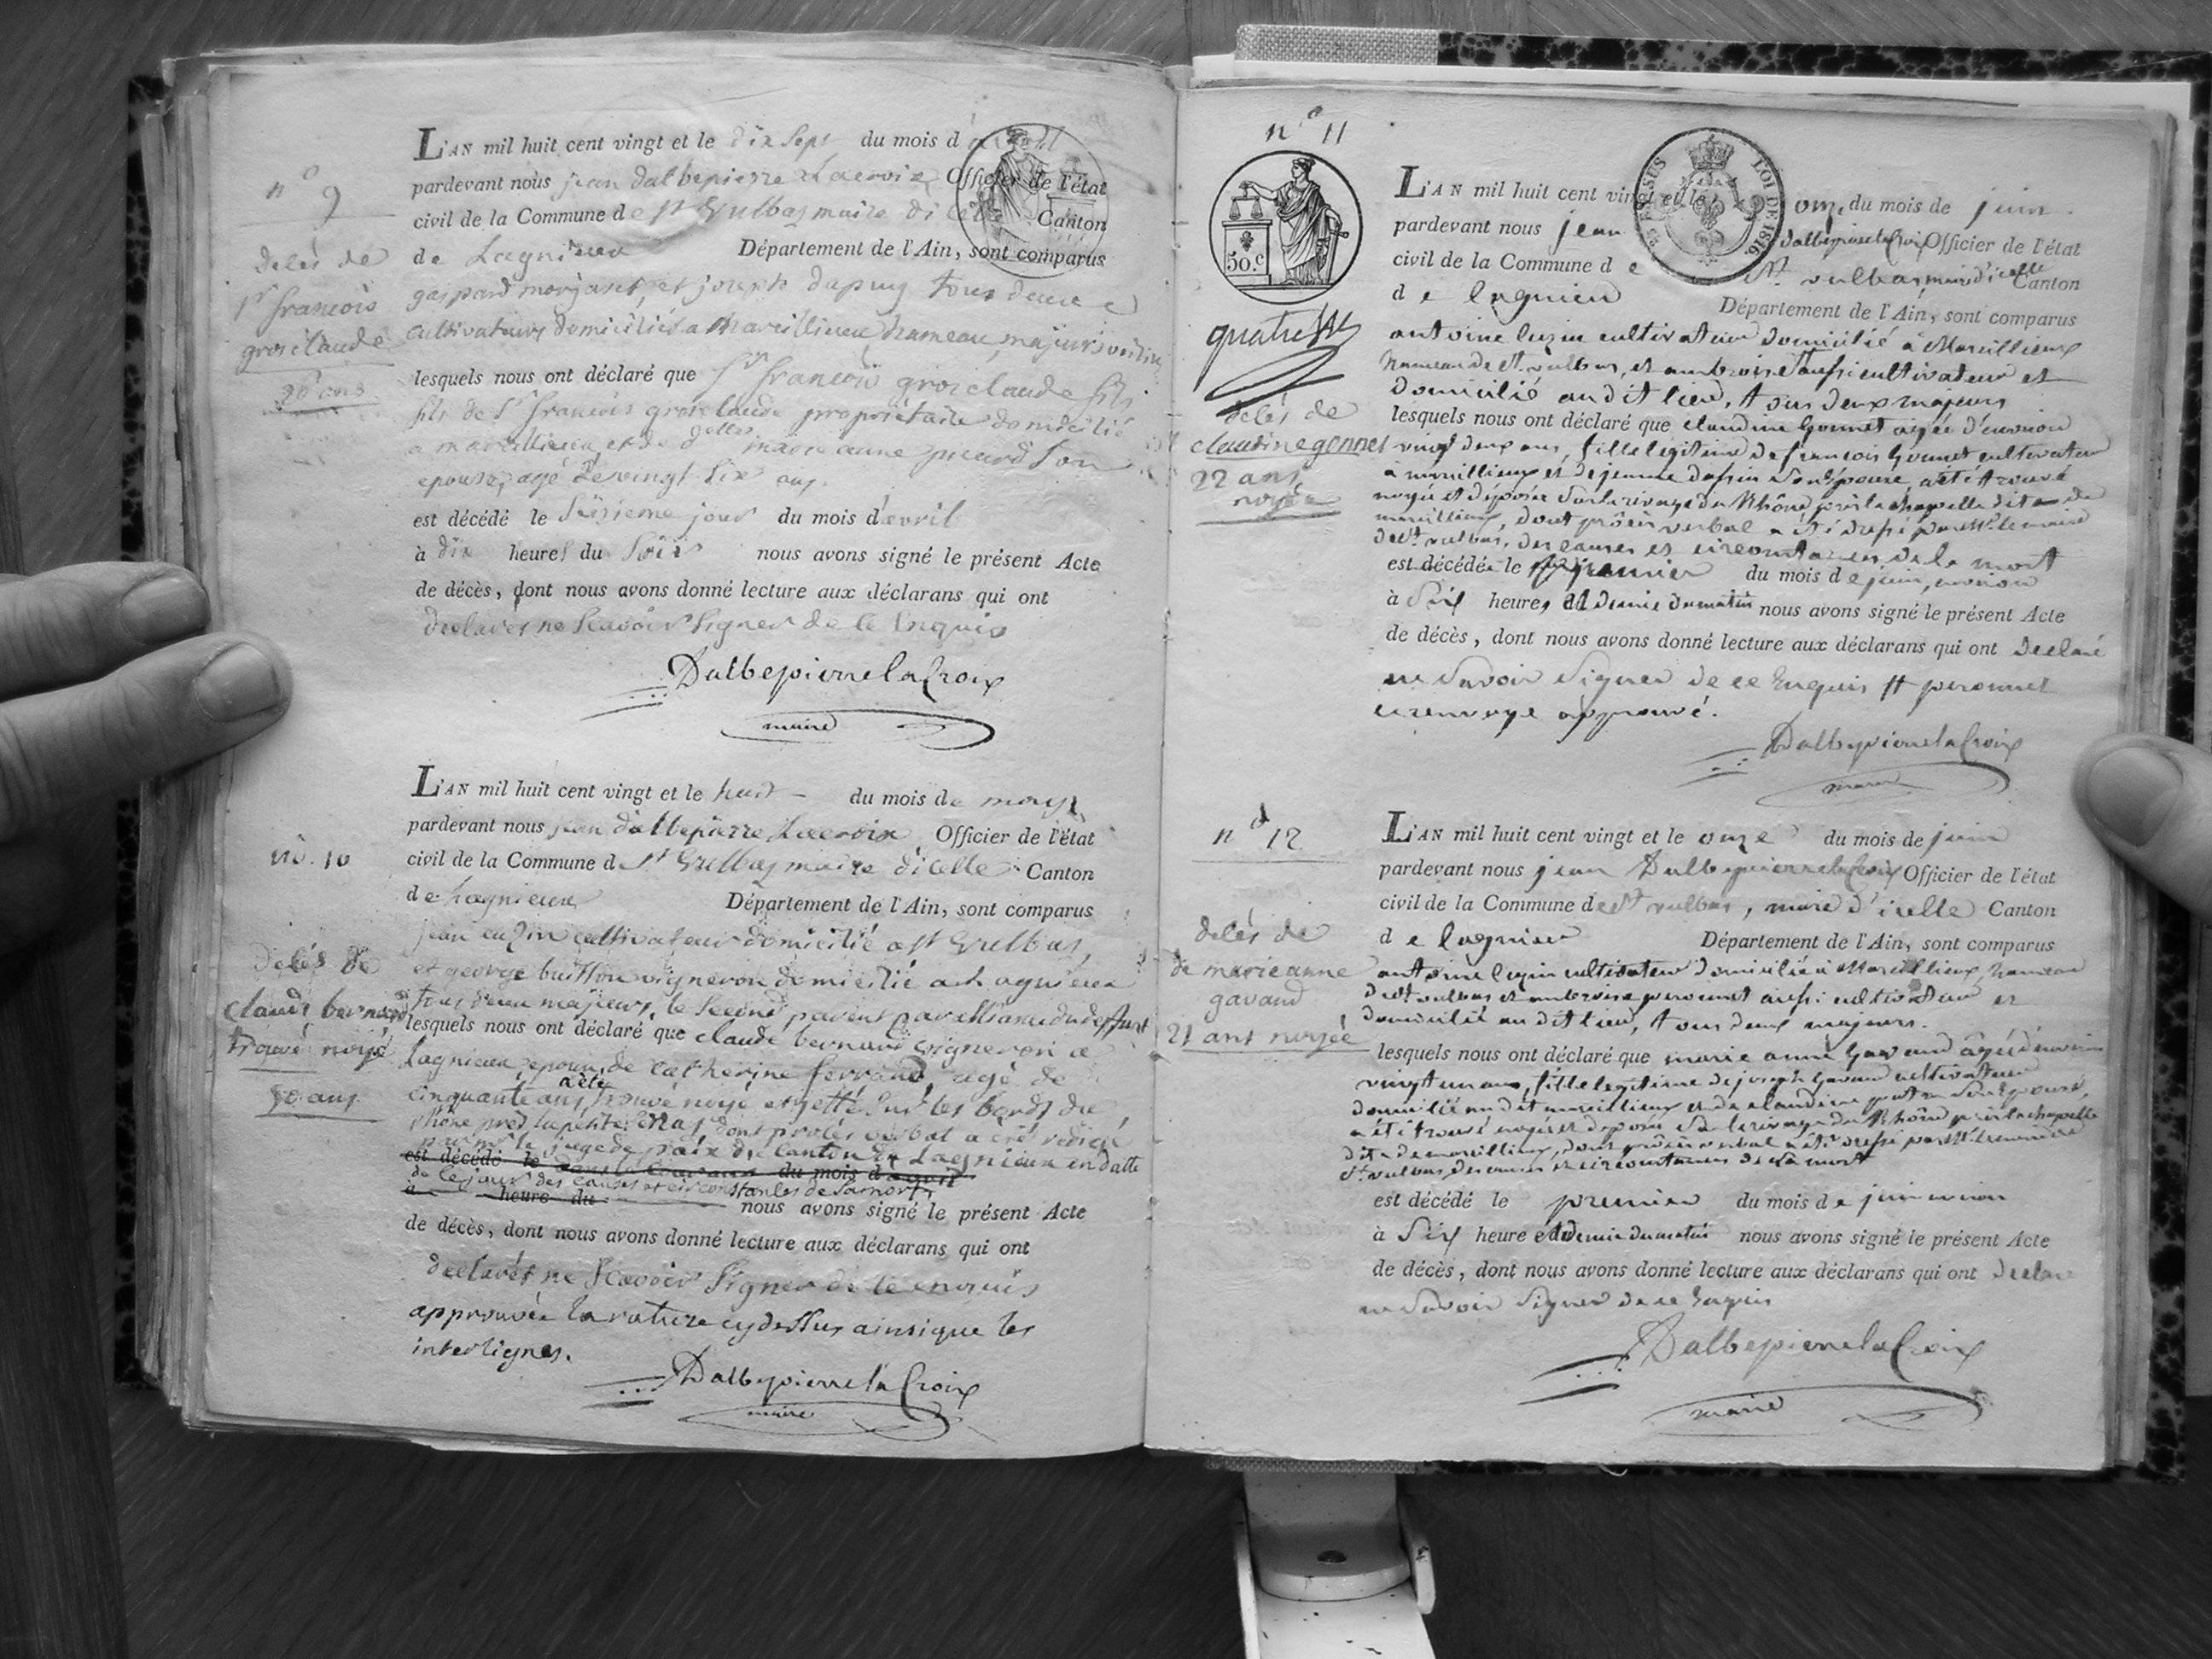 n° 9
décès de
Sr françois
grosclaude
26 ans
L'AN mil huit cent vingt et le dix sept du mois d'avril
pardevant nous jean dalbepierre Lacroix Officier de l'état
civil de la Commune de St Vulbas maire dicelle Canton
de Lagnieux Département de l'Ain, sont comparus
gaspard morjant, et joseph dupuy tous deux
cultivateurs domiciliés a Marcillieux hameau, majeurs voisins
lesquels nous ont déclaré que Sr françois grosclaude fils
fils de Sr françois grosclaude propriétaire domicilié
a marcillieux et de delle marie anne picard son
epouse, agé de vingt six ans.
est décédé le seizieme jour du mois d'avril
à dix heures du soir nous avons signé le présent Acte
de décès, dont nous avons donné lecture aux déclarans qui ont
declarés ne scavoir signer de ce enquis
DalbepierrelaCroix
maire
no. 10
décés de
claude bernard
trouvé noyé
50 ans
L'AN mil huit cent vingt et le huit du mois de may
pardevant nous jean dalbepierre Lacroix Officier de l'état
civil de la Commune d St Vulbas maire dicelle Canton
de Lagnieux Département de l'Ain, sont comparus
jean cuzin cultivateur domicilié a St Vulbas,
et george buisson vigneron domicilié a Lagnieux
tous deux majeurs, le second parent par alliance du deffunt
lesquels nous ont déclaré que claude bernard vigneron a
Lagnieux, epoux de catherine ferrand, agé de
cinquante ans, a été trouvé noyé et jetté sur les bords du
Rhône près la petite dont procés verbal a été rédigé
par mr le juge de paix du Canton de Lagnieux en datte
est décédé le du mois d avril
de ce jour des causes et circonstances de sa mort,
à heure du nous avons signé le présent Acte
de décès, dont nous avons donné lecture aux déclarans qui ont
declarés ne scavoir signer de ce enquis
approuvée la rature cy dessus ainsi que les
interlignes.
DalbepierrelaCroix
maire
n° 11
50.c
quatre
décés de
claudine gonnet
22 ans
noyée
L'AN mil huit cent vingt et le onze du mois de juin
pardevant nous jean dalbepierrelaCroix Officier de l'état
civil de la Commune de St. vulbas, maire d'icelle Canton
de lagnieu Département de l'Ain, sont comparus
antoine cuzin cultivateur domicilié à Marcillieux
hameau de St. vulbas, et ambroise # aussi cultivateur et
domicilié au dit lieu, tous deux majeurs
lesquels nous ont déclaré que claudine Gonnet agée d'environ
vingt deux ans, fille légitime de françois Gonnet cultivateur
a marcillieux et de jeanne son épouse, a été trouvé
noyée et déposée sur le rivage du Rhône près la chapelle dite de
marcillieux, dont procès verbal a été dressé par Mr. le maire
de St. vulbas, des causes et circonstances de la mort
est décédée le premier du mois de juin, environ
à Six heures et demie du matin nous avons signé le présent Acte
de décès, dont nous avons donné lecture aux déclarans qui ont declaré
ne Savoir Signer de ce Enquis # peronnet
ce renvoye approuvé.
DalbepierrelaCroix
maire
n° 12
décés de
de marieanne
gavaud
21 ant noyée
L'AN mil huit cent vingt et le onze du mois de juin
pardevant nous jean DalbepierrelaCroix Officier de l'état
civil de la Commune de St vulbas, maire d'icelle Canton
de lagnieu Département de l'Ain, sont comparus
antoine cuzin cultivateur domicilié à Marcillieux, hameau
de St vulbas et ambroise peronnet aussi cultivateur et
domicilié au dit lieu, tous deux majeurs.
lesquels nous ont déclaré que marie anne Gavaud âgée d'environ
vingt un ans, fille legitime de joseph Gavaud cultivateur
domicilié au dit marcillieux et de claudine son Epouse,
a été trouvé noyée et deposée sur le rivage du Rhône près la chapelle
dite de marcillieux, dont procès verbal a été dressé par Mr. le maire de
St. vulbas, des causes et circonstances de sa mort
est décédé le premier du mois de juin environ
à Six heure et demie du matin nous avons signé le présent Acte
de décès, dont nous avons donné lecture aux déclarans qui ont declaré
ne Savoir Signer de ce Enquis
DalbepierrelaCroix
maire